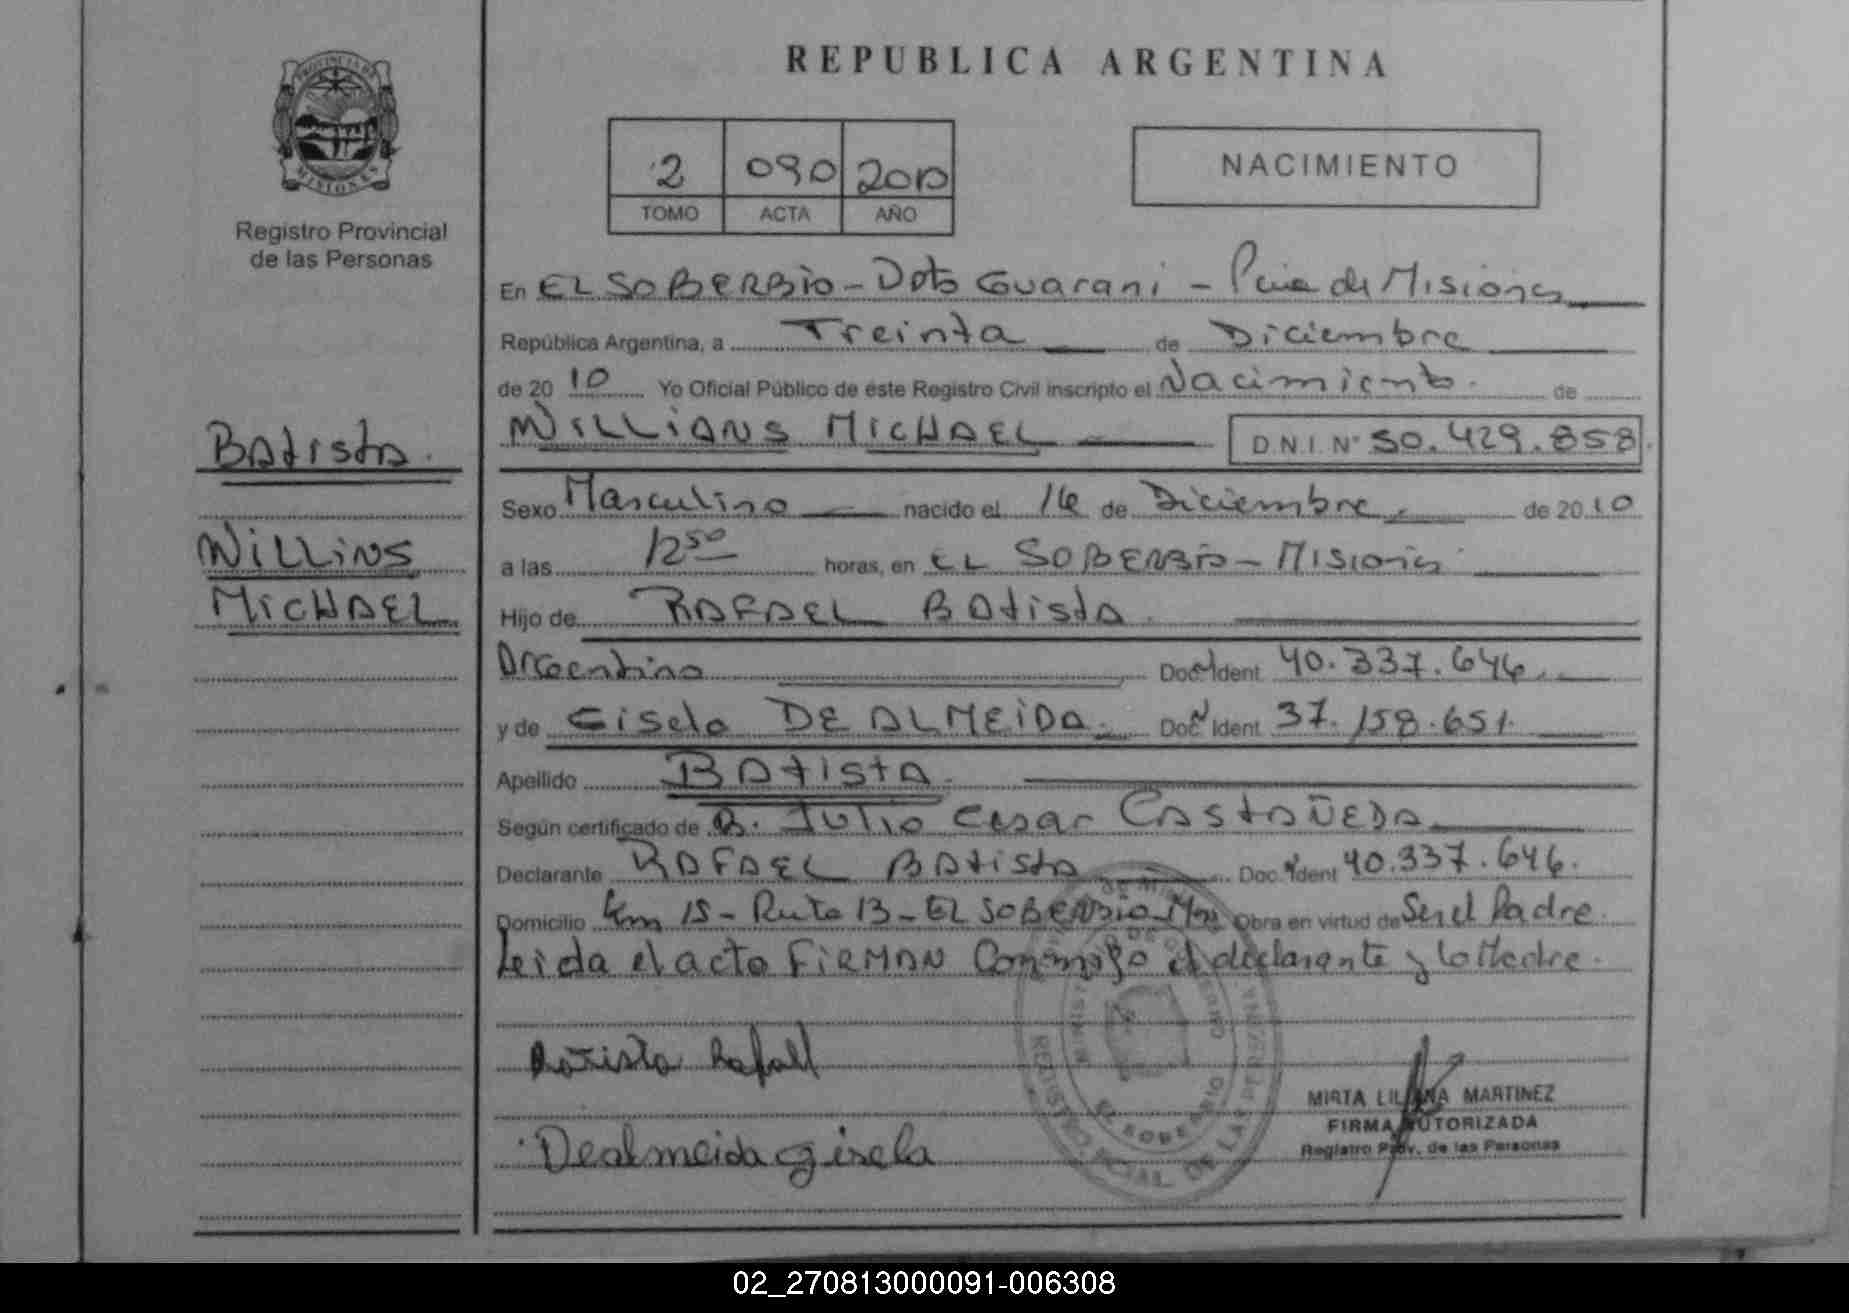 REPUBLICA ARGENTINA
PROVINCIA DE
MISIONES
Registro Provincial
de las Personas
2 090 2010
TOMO ACTA AÑO
NACIMIENTO
En EL SOBERBIO - Dpto Guarani - Pcia de Misiones
República Argentina, a Treinta de Diciembre
de 20 10 Yo Oficial Público de éste Registro Civil inscripto el Nacimiento. de
WILLIANS MICHAEL D.N.I. N° 50.429.858
Batista.
Willins
MICHAEL
Sexo Masculino nacido el 16 de Diciembre de 20 10
a las 12 50 horas, en EL SOBERBIO - Misiones
Hijo de RAFAEL Batista
Argentino Doc. Ident 40.337.646
y de Gisela DE ALMEIDA. Doc. Ident 37.158.651.
Apellido BAtistA
Según certificado de Julio Cesar CASTAÑEDA
Declarante RAFAEL BAtista Doc. Ident 40.337.646.
Domicilio km 15 - Ruta 13 - EL SOBERBIO Obra en virtud de Ser el Padre.
Leida el acta FIRMAN Conmigo el declarante y la Madre.
Batista Rafael
Dealmeida gisela
EL SOBERBIO
MIRTA LILIANA MARTINEZ
FIRMA AUTORIZADA
Registro Prov. de las Personas
02_270813000091-006308